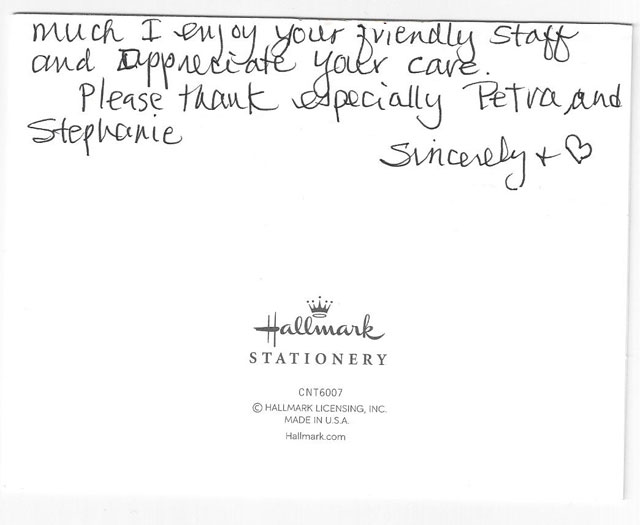 much I enjoy your friendly staff
and Appreciate your care.
Please thank especially Petra, and
Stephanie
Sincerely + ♡
Hallmark
STATIONERY
CNT6007
© HALLMARK LICENSING, INC.
MADE IN U.S.A.
Hallmark.com